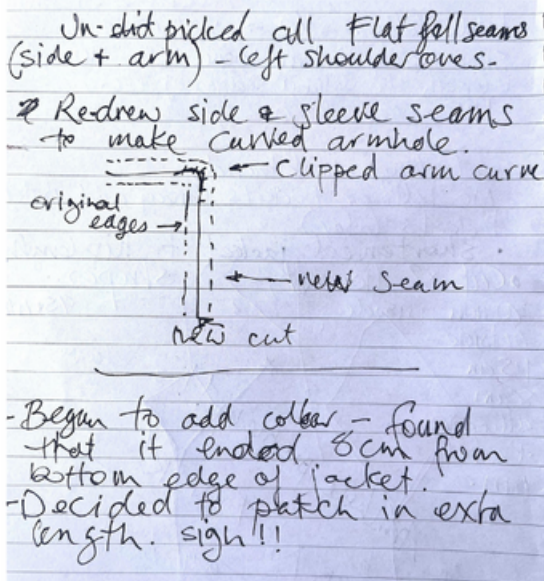 Un-shit picked all Flat fell seams
(side + arm) - left shoulder ones.
Re-drew side & sleeve seams
to make curved armhole.
← clipped arm curve
original
edges →
← new seam
new cut
- Began to add collar - found
that it ended 8cm from
bottom edge of jacket.
- Decided to patch in extra
length. sigh!!